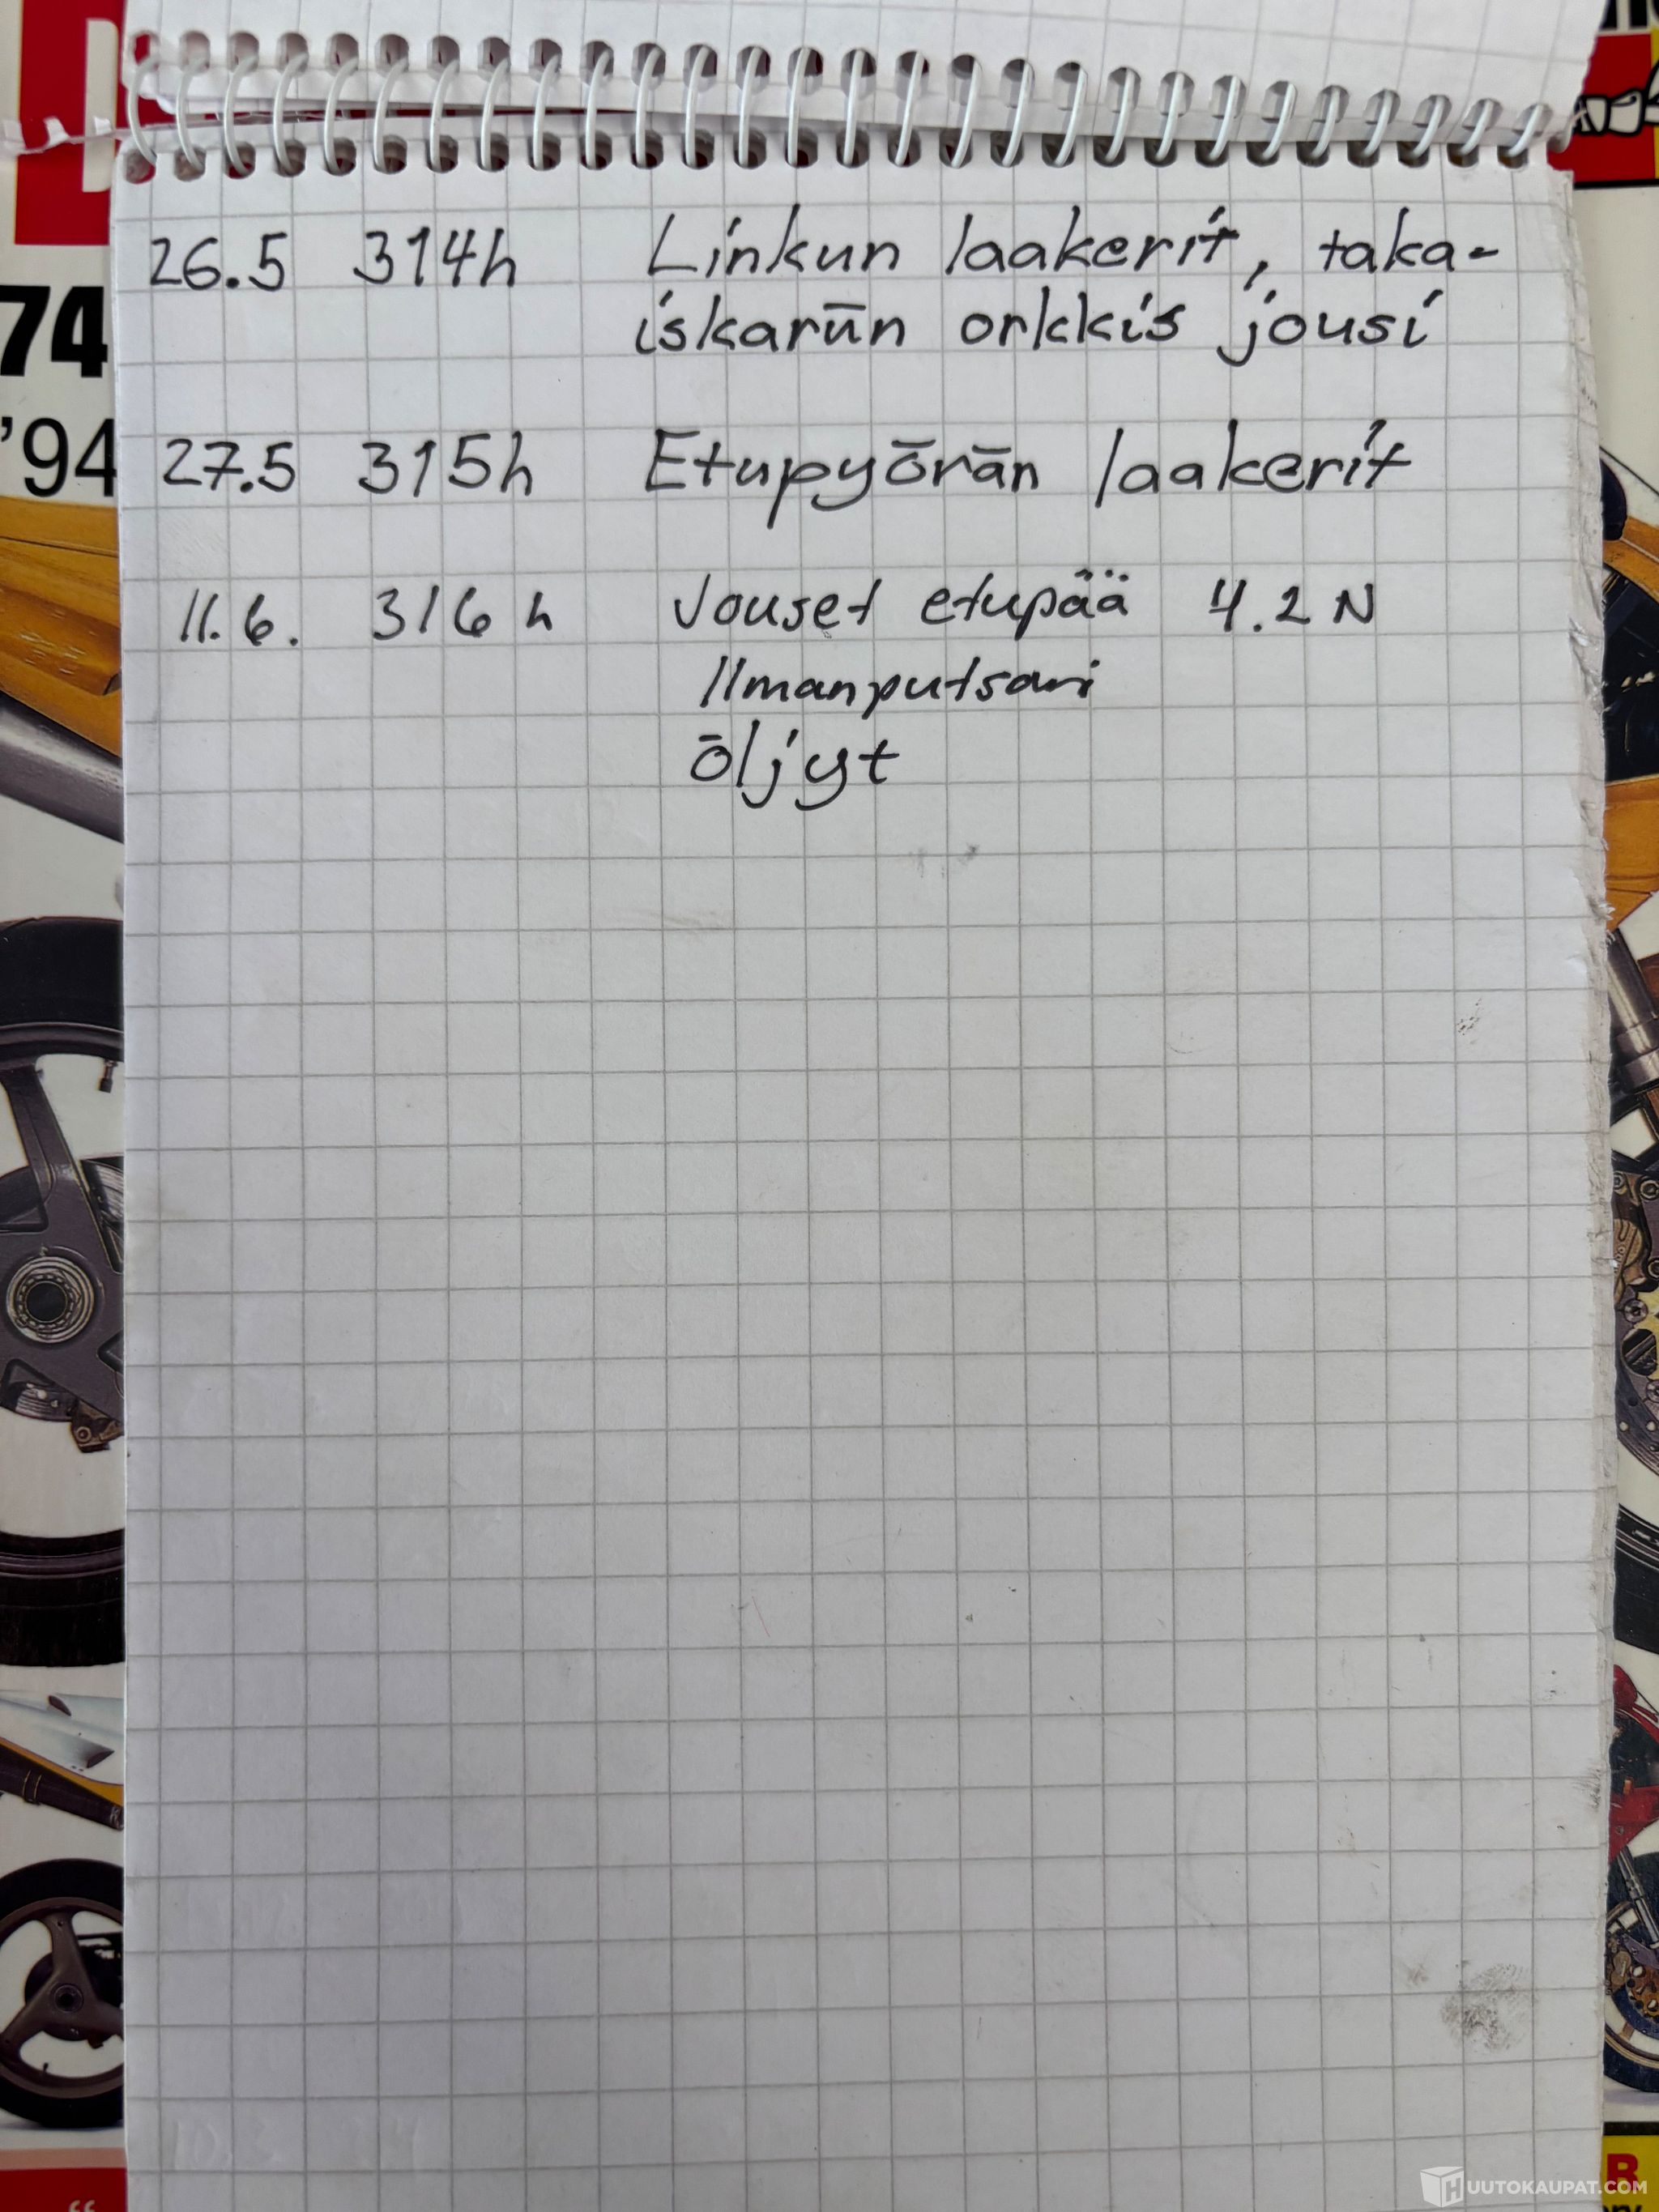 26.5 314h Linkun laakerit, taka-
iskarīn orkkis jousi
27.5 315h Etupyōrān laakerit
11.6. 316 h Jouset etupää 4.2 N
Ilmanputsari
ōljyt
74
'94
R
HUUTOKAUPAT.COM